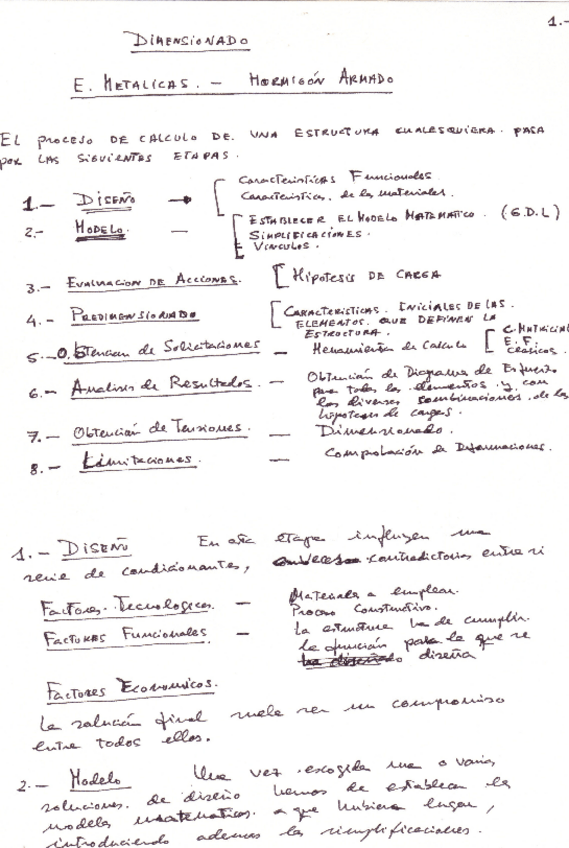 1.-
DIMENSIONADO
E. METALICAS. - HORMIGÓN ARMADO
EL PROCESO DE CALCULO DE UNA ESTRUCTURA CUALESQUIERA. PASA
POR LAS SIGUIENTES ETAPAS.
1.- DISEÑO → [ Caracteristicas Funcionales.
Caracteristicas de los materiales.
2.- MODELO. - [ ESTABLECER EL MODELO MATEMATICO. (G.D.L)
SIMPLIFICACIONES.
VINCULOS.
3.- EVALUACION DE ACCIONES. [ HIPOTESIS DE CARGA
4.- PREDIMENSIONADO [ CARACTERISTICAS. INICIALES DE LAS.
ELEMENTOS. QUE DEFINEN LA
ESTRUCTURA.
5.- Obtencion de Solicitaciones - Herramientas de Calculo [ C. MATRICIAL
E. F.
CLÁSICOS.
6.- Analisis de Resultados. - Obtención de Diagrama de Esfuerzo
para todos los elementos y con
las diversas combinaciones de las
hipotesis de cargas.
7.- Obtención de Tensiones. - Dimensionado.
8.- Limitaciones. - Comprobación de Deformaciones.
1.- DISEÑO En esta etapa influyen una
serie de condicionantes, contradictorios entre si
Factores Tecnologicos. - Materiales a emplear.
Proceso Constructivo.
FACTORES FUNCIONALES - La estructura ha de cumplir.
la función para la que se
diseña
FACTORES ECONOMICOS.
La solución final suele ser un compromiso
entre todos ellos.
2.- Modelo Una vez escogida una o varias
soluciones. de diseño hemos de establecer los
modelos matematicos. a que hubiera lugar,
introduciendo ademas las simplificaciones.